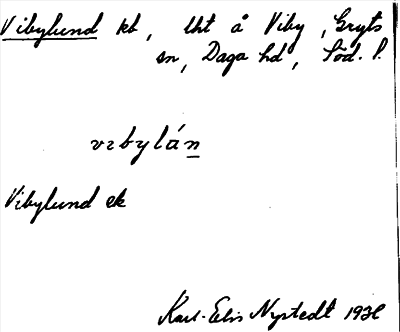 Vibylund kt, lht å Viby, Gryts
sn, Daga hd, Söd. l.
vibylán
Vibylund ek
Karl-Elis Nystedt